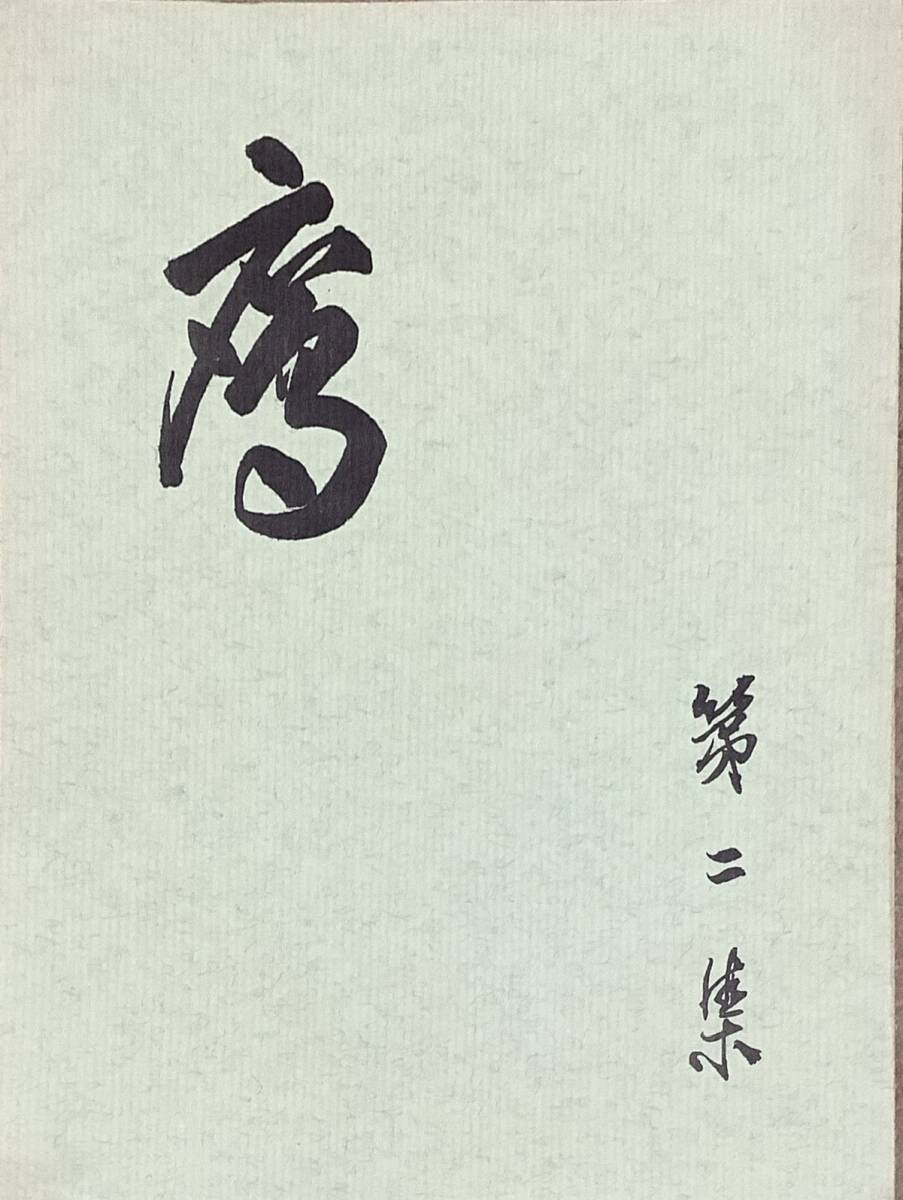 鷹
第二集